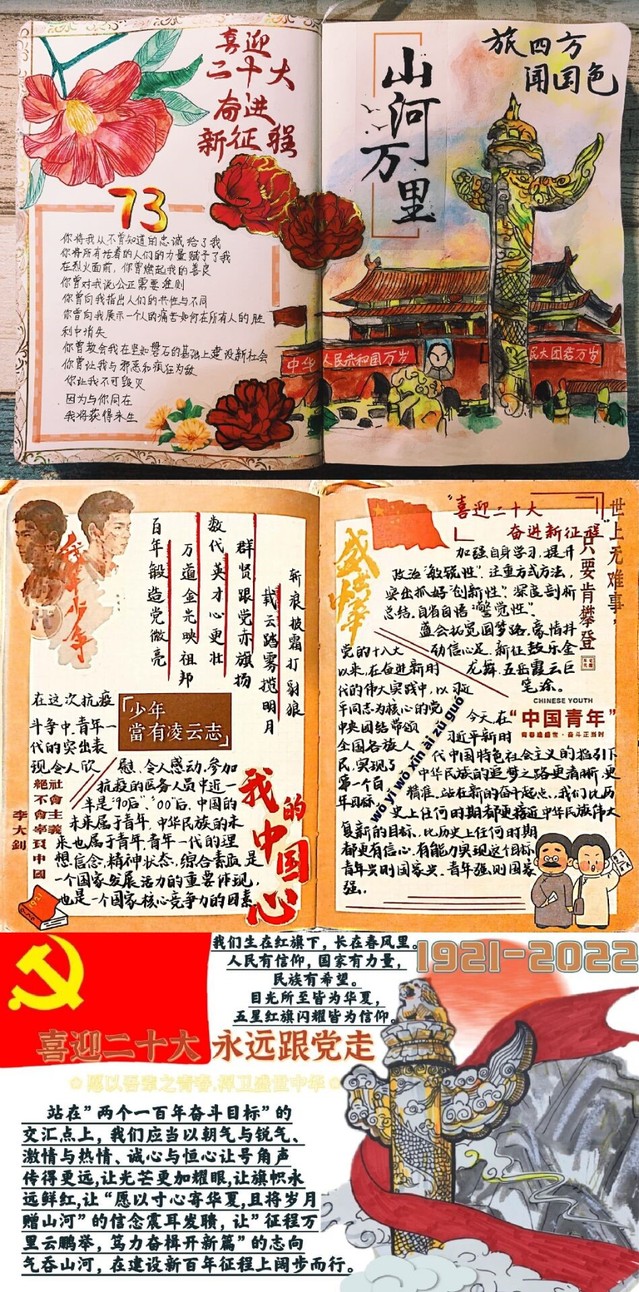 喜迎
二十大
奋进
新征程
73
你将我从不曾知道的忠诚给了我
你将所有活着的人们的力量赋予了我
在烈火面前，你曾燃起我的善良
你曾对我说公正需要准则
你曾向我指出人们的共性与不同
你曾向我展示一个人的痛苦如何在所有人的胜
利中消失
你曾教会我在坚如磐石的基础上建设新社会
你曾让我与邪恶和疯狂为敌
你让我不可毁灭
因为与你同在
我将获得永生
旅四方
闻国色
山河
万里
中华人民共和国万岁
民大团结万岁
百年锻造党徽亮
万道金光映祖邦
数代英才心更壮
群贤跟党赤旗扬
载云踏雾揽明月
斩浪披霜打豺狼
「少年
當有凌云志」
在这次抗疫
斗争中，青年一
代的突出表
现，令人欣慰，令人感动，参加
抗疫的医务人员中近一
半是“90后”、“00后”，中国的
未来属于青年，中华民族的未
来也属于青年，青年一代的理
想信念、精神状态、综合素质是
一个国家发展活力的重要体现，
也是一个国家核心竞争力的因素
社會主義
絕不會辜負中國
李大釗
我的
中国
心
“喜迎二十大
奋进新征程”
世上无难事，
只要肯攀登
盛世
中华
加强自身学习，提升
政治“敏锐性”，注重方式方法，
突出抓好“创新性”，深度剖析
总结，自省自悟“警觉性”
盛会拓宽圆梦路，豪情抖
动信心足，新征鼓乐金
龙舞，五岳霞云巨
笔涂。
党的十八大
以来，在奋进新时
代的伟大实践中，以习近
平同志为核心的党
中央团结带领
全国各族人
民，实现了
第一个百
年目标
wǒ yì wǒ xīn ài zǔ guó
CHINESE YOUTH
“中国青年”
青春逢盛世·奋斗正当时
今天，在
习近平新时
代中国特色社会主义的指引下
中华民族的追梦之路更清晰，更
精准，站在新的奋斗起点，我们比历
史上任何时期都更接近中华民族伟大
复兴的目标，比历史上任何时期
都更有信心，有能力实现这个目标，
青年兴则国家兴，青年强则国家
强。
我们生在红旗下，长在春风里。
人民有信仰，国家有力量，
民族有希望。
目光所至皆为华夏，
五星红旗闪耀皆为信仰。
1921-2022
喜迎二十大 永远跟党走
愿以吾辈之青春，捍卫盛世中华
站在”两个一百年奋斗目标”的
交汇点上，我们应当以朝气与锐气、
激情与热情、诚心与恒心让号角声
传得更远，让光芒更加耀眼，让旗帜永
远鲜红，让“愿以寸心寄华夏，且将岁月
赠山河”的信念震耳发聩，让”征程万
里云鹏举，笃力奋楫开新篇”的志向
气吞山河，在建设新百年征程上阔步而行。